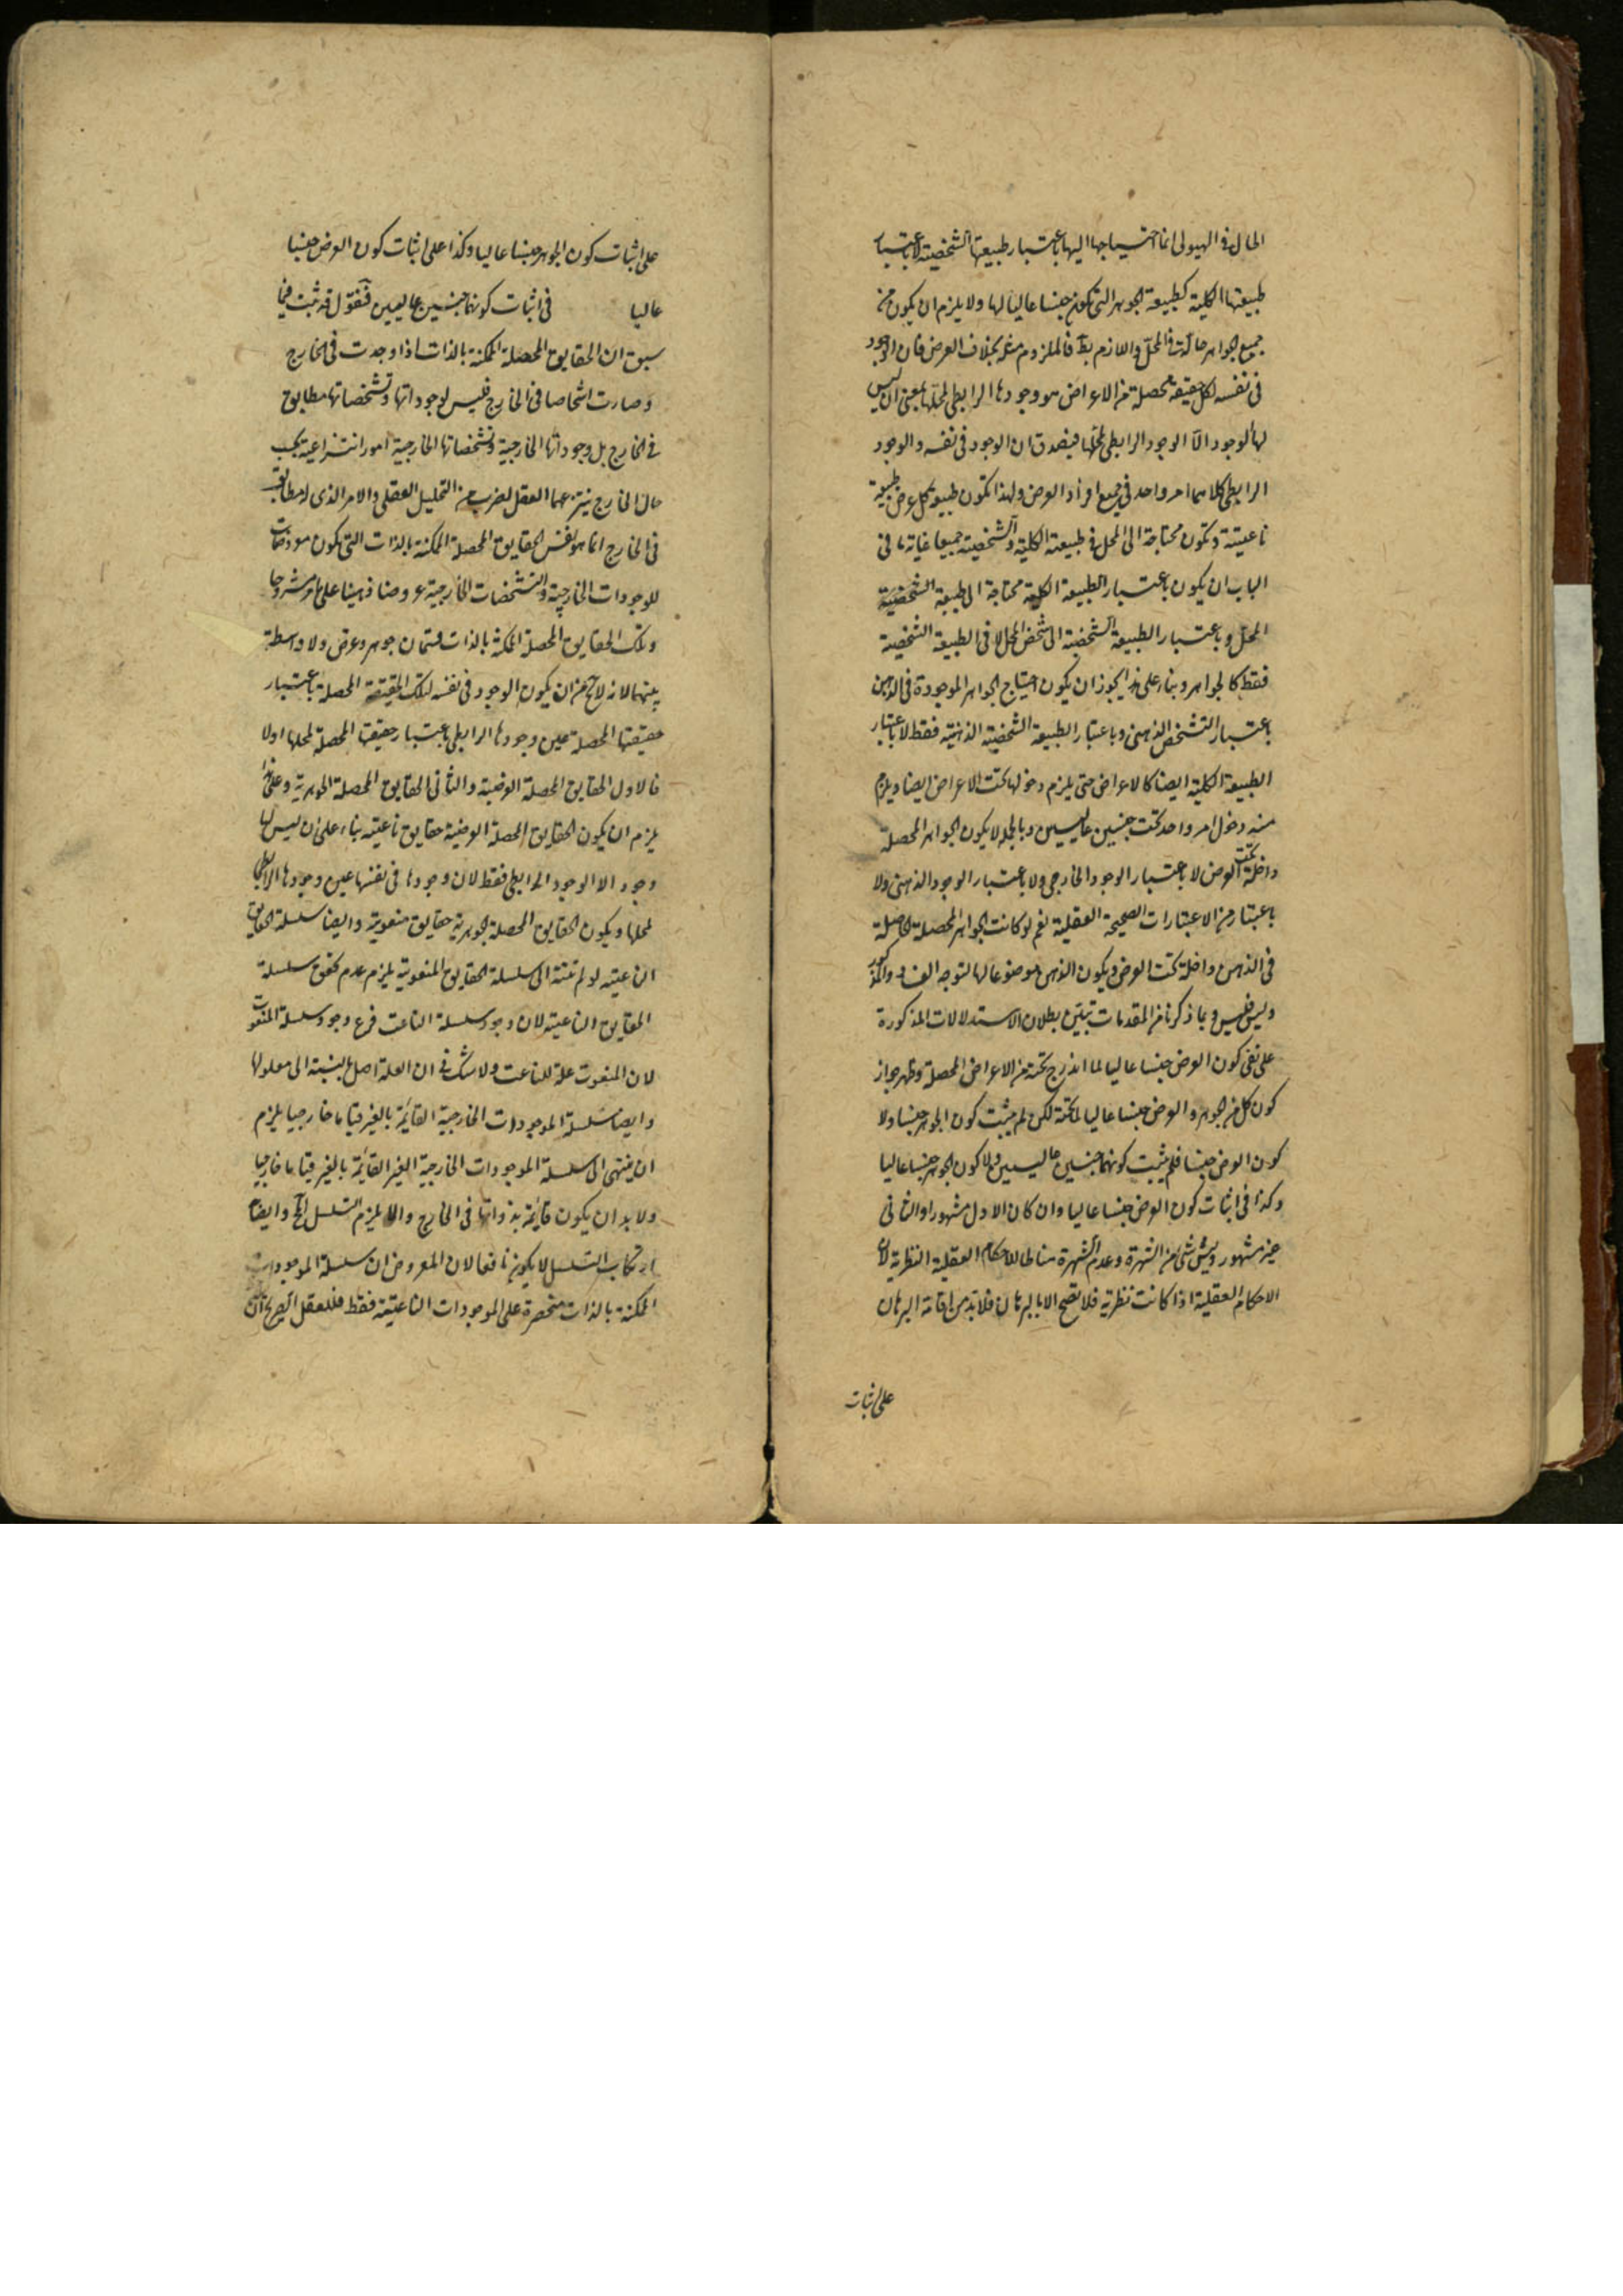 الحال فى الهيولى انما احتياجها اليها باعتبار طبيعتها الشخصية لا باعتبار
طبيعتها الكلية كطبيعة الجوهر التى تكون جنسا عاليا لها ولا يلزم ان يكون من
جميع الجواهر حالة فى المحل واللازم بط فالملزوم مثله بخلاف العرض فان الوجود
فى نفسه لكل حقيقة محصلة من الاعراض هو وجودها الرابطى لمحلها بمعنى ان ليس
لها الوجود الا الوجود الرابطى لمحلها فيصدق ان الوجود فى نفسه والوجود
الرابطى كلاهما امر واحد فى جميع افراد العرض ولهذا تكون طبيعة كل عرض طبيعة
ناعتية وتكون محتاجة الى المحل فى طبيعته الكلية والشخصية جميعا غاية ما فى
الباب ان يكون باعتبار الطبيعة الكلية محتاجة الى طبيعة الشخصية
المحل وباعتبار الطبيعة الشخصية الى شخص المحل لا فى الطبيعة الشخصية
فقط كالجواهر وبناء على هذا يجوز ان يكون احتياج الجواهر الموجودة فى الذهن
باعتبار التشخص الذهنى وباعتبار الطبيعة الشخصية الذهنية فقط لا باعتبار
الطبيعة الكلية ايضا كالاعراض حتى يلزم دخولها تحت الاعراض ايضا ويلزم
منه دخول امر واحد تحت جنسين عاليين وبالجملة لا يكون الجواهر المحصلة
داخلة تحت العرض لا باعتبار الوجود الخارجى ولا باعتبار الوجود الذهنى ولا
باعتبار من الاعتبارات الصحيحة العقلية نعم لو كانت الجواهر المحصلة الحاصلة
فى الذهن داخلة تحت العرض ويكون الذهن موضوعا لها لتوجه الفساد المذكور
وليس فليس وبما ذكرنا من المقدمات تبين بطلان الاستدلالات المذكورة
على نفى كون العرض جنسا عاليا لما اندرج تحته من الاعراض المحصلة وظهر جواز
كون كل من الجوهر والعرض جنسا عاليا لما تحته لكن لم يثبت كون الجوهر جنسا ولا
كون العرض جنسا فلم يثبت كونهما جنسين عاليين ولا كون الجوهر جنسا عاليا
وكذا فى اثبات كون العرض جنسا عاليا وان كان الاول مشهورا والثانى
غير مشهور وليس شئ من الشهرة وعدم الشهرة مناطا للاحكام العقلية النظرية لان
الاحكام العقلية اذا كانت نظرية فلا تصح الا بالبرهان فلا بد من اقامة البرهان
على اثبات
على اثبات كون الجوهر جنسا عاليا وكذا على اثبات كون العرض جنسا
عاليا فى اثبات كونهما جنسين عاليين فنقول قد ثبت فيما
سبق ان الحقايق المحصلة الممكنة بالذات اذا وجدت فى الخارج
وصارت اشخاصا فى الخارج فليس لوجوداتها وتشخصاتها مطابق
فى الخارج بل وجوداتها الخارجية وتشخصاتها الخارجية امور انتزاعية بحسب
حال الخارج ينتزعها العقل بضرب من التحليل العقلى والامر الذى له مطابق
فى الخارج انما هو نفس الحقايق المحصلة الممكنة بالذات التى تكون معروضات
للوجودات الخارجية والتشخصات الخارجية عروضا ذهنيا على ما مر مشروحا
وتلك الحقايق المحصلة الممكنة بالذات قسمان جوهر وعرض ولا واسطة
بينهما لانه لا يخ من ان يكون الوجود فى نفسه لتلك الحقيقة المحصلة باعتبار
حقيقتها المحصلة عين وجودها الرابطى باعتبار حقيقتها المحصلة لمحلها او لا
فالاول الحقايق المحصلة العرضية والثانى الحقايق المحصلة الجوهرية وعلى هذا
يلزم ان يكون الحقايق المحصلة العرضية حقايق ناعتية بناء على ان ليس لها
وجود الا الوجود الرابطى فقط لان وجودها فى نفسها عين وجودها الرابطى
لمحلها ويكون الحقايق المحصلة الجوهرية حقايق منعوتية وايضا سلسلة الحقايق
الناعتية لو لم تنته الى سلسلة الحقايق المنعوتية يلزم عدم تحقق سلسلة
الحقايق الناعتية لان وجود سلسلة الناعت فرع وجود سلسلة المنعوت
لان المنعوت علة للناعت ولا شك فى ان العلة اصل بالنسبة الى معلولها
وايضا سلسلة الموجودات الخارجية القائمة بالغير قياما خارجيا يلزم
ان ينتهى الى سلسلة الموجودات الخارجية الغير القائمة بالغير قياما خارجيا
ولا بد ان يكون قائمة بذواتها فى الخارج والا يلزم التسلسل المح وايضا
ارتكاب التسلسل لا يكون نافعا لان المعروض ان سلسلة الموجودات
الممكنة بالذات منحصرة على الموجودات الناعتية فقط فللعقل الصريح ان